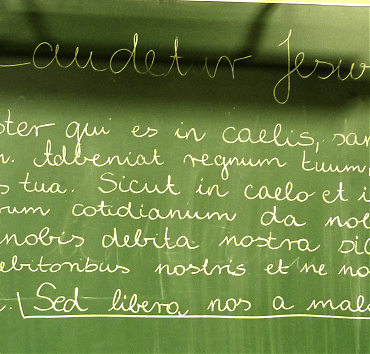 Laudetur Jesus
ster qui es in caelis, san
n. Adveniat regnum tuum,
s tua. Sicut in caelo et i
rum cotidianum da nob
nobis debita nostra sic
ebitoribus nostris et ne no
. Sed libera nos a malo